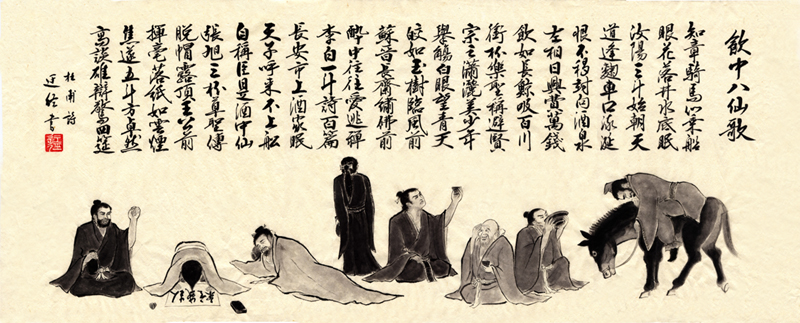 飲中八仙歌
知章騎馬似乘船
眼花落井水底眠
汝陽三斗始朝天
道逢麴車口流涎
恨不移封向酒泉
左相日興費萬錢
飲如長鯨吸百川
銜杯樂聖稱避賢
宗之瀟灑美少年
舉觴白眼望青天
皎如玉樹臨風前
蘇晉長齋繡佛前
醉中往往愛逃禪
李白一斗詩百篇
長安市上酒家眠
天子呼來不上船
自稱臣是酒中仙
張旭三杯草聖傳
脫帽露頂王公前
揮毫落紙如雲煙
焦遂五斗方卓然
高談雄辯驚四筵
杜甫詩
書